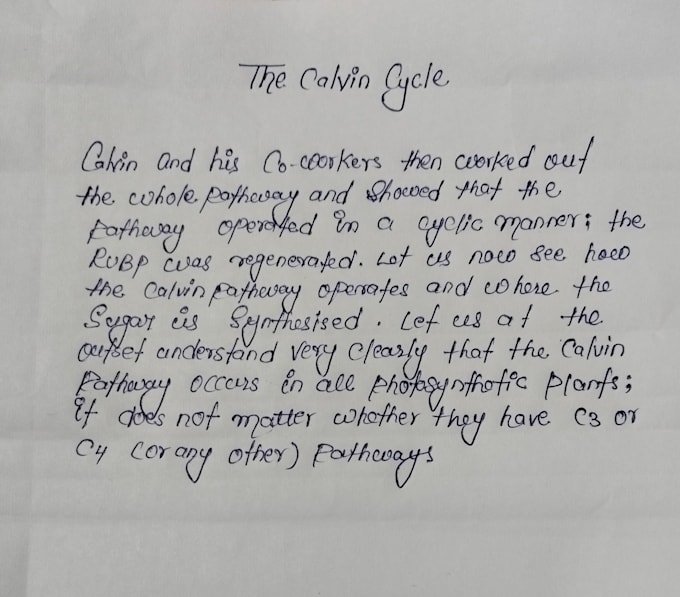 The Calvin Cycle
Calvin and his Co-workers then worked out
the whole pathway and showed that the
pathway operated in a cyclic manner; the
RUBP was regenerated. Let us now see how
the Calvin pathway operates and where the
Sugar is Synthesised. Let us at the
outset understand very clearly that the Calvin
Pathway occurs in all photosynthetic plants;
it does not matter whether they have C3 or
C4 (or any other) Pathways